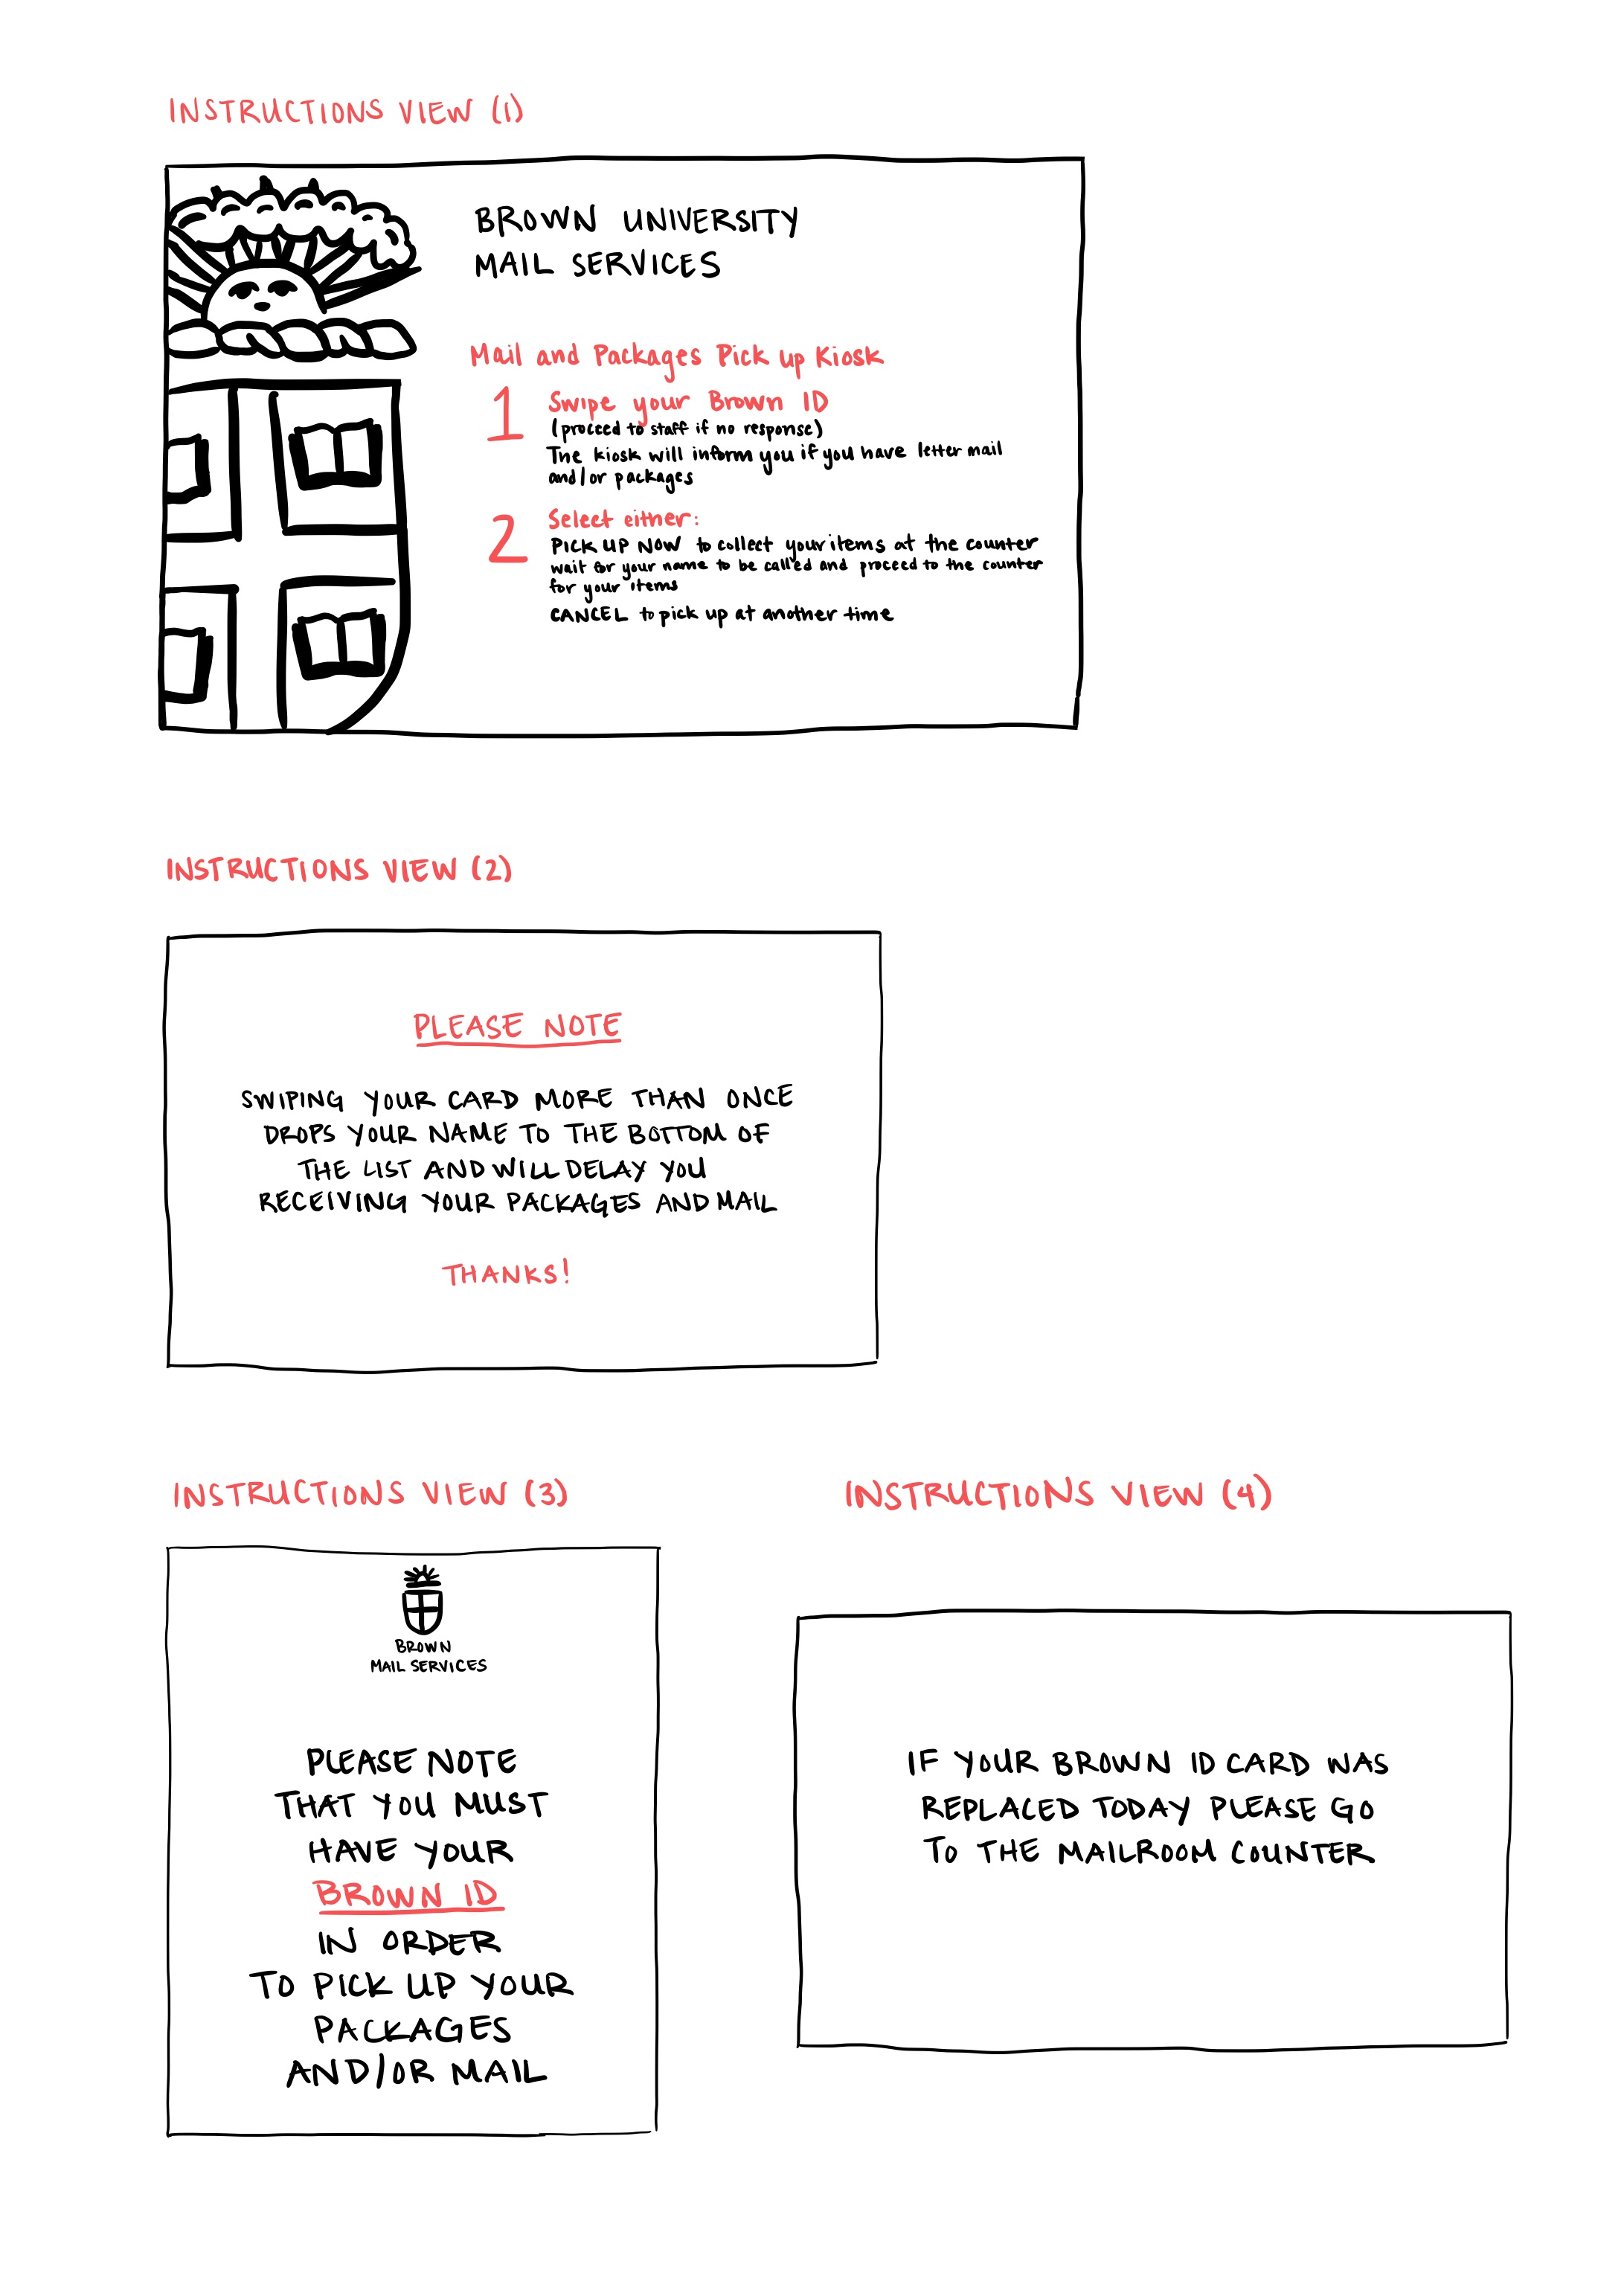 INSTRUCTIONS VIEW (1)
BROWN UNIVERSITY
MAIL SERVICES
Mail and Packages Pick up Kiosk
1
Swipe your Brown ID
(proceed to staff if no response)
The kiosk will inform you if you have letter mail
and/or packages
2
Select either:
PICK UP NOW to collect your items at the counter
wait for your name to be called and proceed to the counter
for your items
CANCEL to pick up at another time
INSTRUCTIONS VIEW (2)
PLEASE NOTE
SWIPING YOUR CARD MORE THAN ONCE
DROPS YOUR NAME TO THE BOTTOM OF
THE LIST AND WILL DELAY YOU
RECEIVING YOUR PACKAGES AND MAIL
THANKS!
INSTRUCTIONS VIEW (3)
BROWN
MAIL SERVICES
PLEASE NOTE
THAT YOU MUST
HAVE YOUR
BROWN ID
IN ORDER
TO PICK UP YOUR
PACKAGES
AND/OR MAIL
INSTRUCTIONS VIEW (4)
IF YOUR BROWN ID CARD WAS
REPLACED TODAY PLEASE GO
TO THE MAILROOM COUNTER